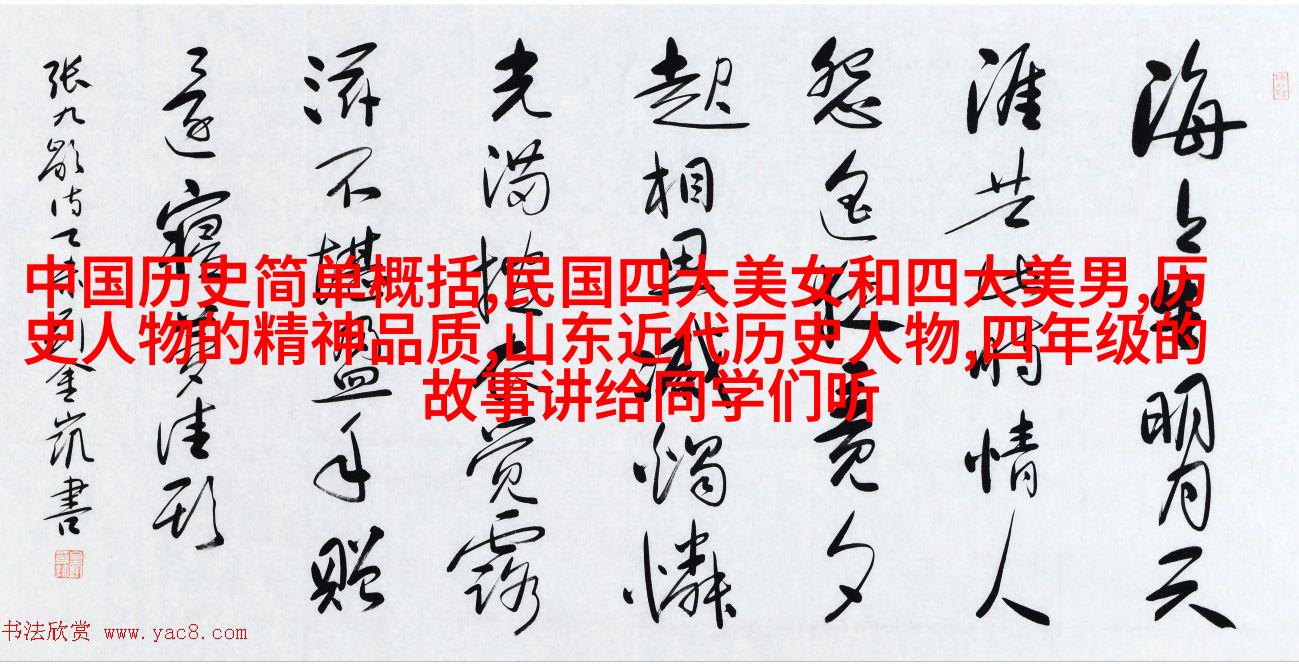 海上生明月天
涯共此时情人
怨遥夜竟夕
起相思滅燭憐
光满披衣觉露
滋不堪盈手赠
还寝梦佳期
张九龄诗乙未金凯書
中国历史简单概括,民国四大美女和四大美男,历
史人物的精神品质,山东近代历史人物,四年级的
故事讲给同学们听
书法欣赏 www.yac8.com